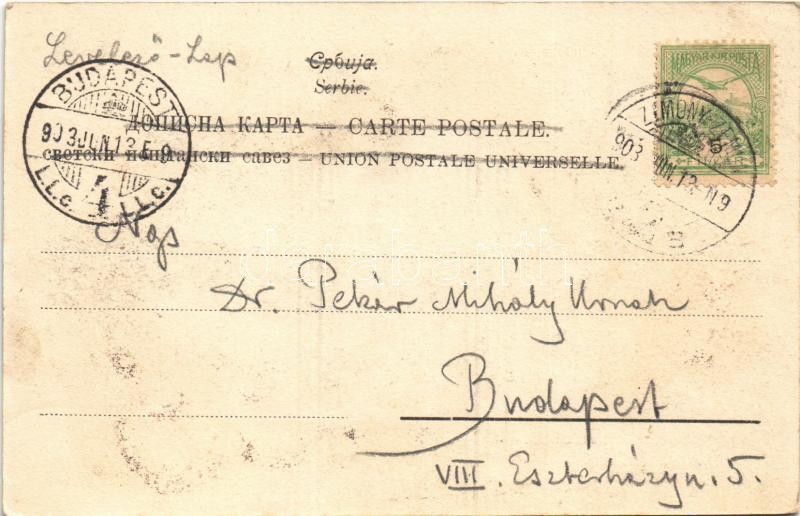 Levelező-Lap
Србија.
Serbie.
MAGYAR KIR. POSTA
BUDAPEST
903 JUN 13 É 9
I.I.c. 4 I.I.c.
ZIMONY
903 JUN. 13. N 9
ДОПИСНА КАРТА — CARTE POSTALE.
СВЕТСКИ ПОШТАНСКИ САВЕЗ — UNION POSTALE UNIVERSELLE.
Nags
Dr. Pekár Mihály Urnak
Budapest
VIII. Eszterházy u. 5.